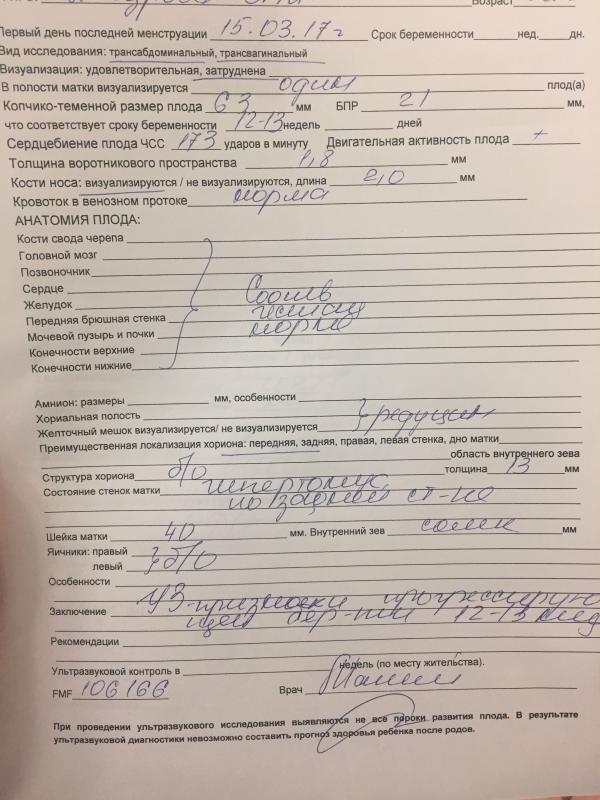 Возраст
Первый день последней менструации 15.03.17г Срок беременности нед. дн.
Вид исследования: трансабдоминальный, трансвагинальный
Визуализация: удовлетворительная, затруднена
В полости матки визуализируется один плод(а)
Копчико-теменной размер плода 63 мм БПР 21 мм,
что соответствует сроку беременности 12-13 недель дней
Сердцебиение плода ЧСС 173 ударов в минуту Двигательная активность плода +
Толщина воротникового пространства 1,8 мм
Кости носа: визуализируются / не визуализируются, длина 2,0 мм
Кровоток в венозном протоке норма
АНАТОМИЯ ПЛОДА:
Кости свода черепа
Головной мозг
Позвоночник
Сердце
Желудок Соотв
Передняя брюшная стенка гестации
Мочевой пузырь и почки норма
Конечности верхние
Конечности нижние
Амнион: размеры мм, особенности
Хориальная полость
Желточный мешок визуализируется/ не визуализируется редуцир
Преимущественная локализация хориона: передняя, задняя, правая, левая стенка, дно матки
область внутреннего зева
Структура хориона б/о толщина 13 мм
Состояние стенок матки гипертонус
по задней ст-ке
Шейка матки 40 мм. Внутренний зев сомкн мм
Яичники: правый
левый б/о
Особенности
Заключение УЗ-признаки прогрессирую
щей бер-ти 12-13 нед
Рекомендации
Ультразвуковой контроль в недель (по месту жительства).
FMF 106166 Врач
При проведении ультразвукового исследования выявляются не все пороки развития плода. В результате
ультразвуковой диагностики невозможно составить прогноз здоровья ребенка после родов.